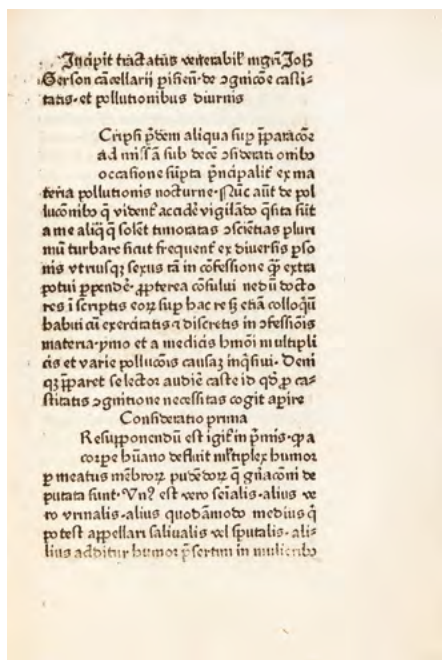 Incipit tractatus venerabil' mgr̄i Joh̄
Gerson cācellarij pisien̄· de ↄgnicōe casti-
tatis· et pollutionibus diurnis
Cripsi p̄dem aliqua sup p̄paracōe
ad missā sub decē ↄsiderationibꝫ
occasione sūpta p̄ncipalit̄ ex ma
teria pollutionis nocturne· Nūc aūt de pol
lucōnibꝫ q̄ vident̄ accidē vigilādo q̄sita sūt
a me aliq̄ q̄ solēt timoratas ↄsciētias pluri
mū turbare sicut frequent̄ ex diuersis pso
nis vtriusqꝫ sexus tā in cōfessione q̄ extra
potui ꝑpendē· ꝓpterea cōsului nedū docto
res ī scriptis eoꝝ sup hac re sꝫ etiā colloq̄ū
habui cū exercitatis ⁊ discretis in ↄfessiōis
materia· pmo et a medicis hmōi multipli
cis et varie pollucōis causas inq̄siui· Deni
qꝫ p̄paret se lector audiē caste id qd̄ ꝓ ca-
stitatis ↄgnitione necessitas cogit apire
Consideratio prima
Resupponendū est igit̄ in p̄mis· ꝙ a
corpe hūano defluit mltiplex humor
ꝑ meatus mēbroꝝ pudēdoꝝ q̄ gn̄acōni de
putata sunt· Vn⁹ est vero sēialis· alius ve
ro vrinalis· alius quodāmodo medius q̄
potest appellari saliualis vel sputalis· ali-
lius additur humor p̄sertim in mulieribꝫ